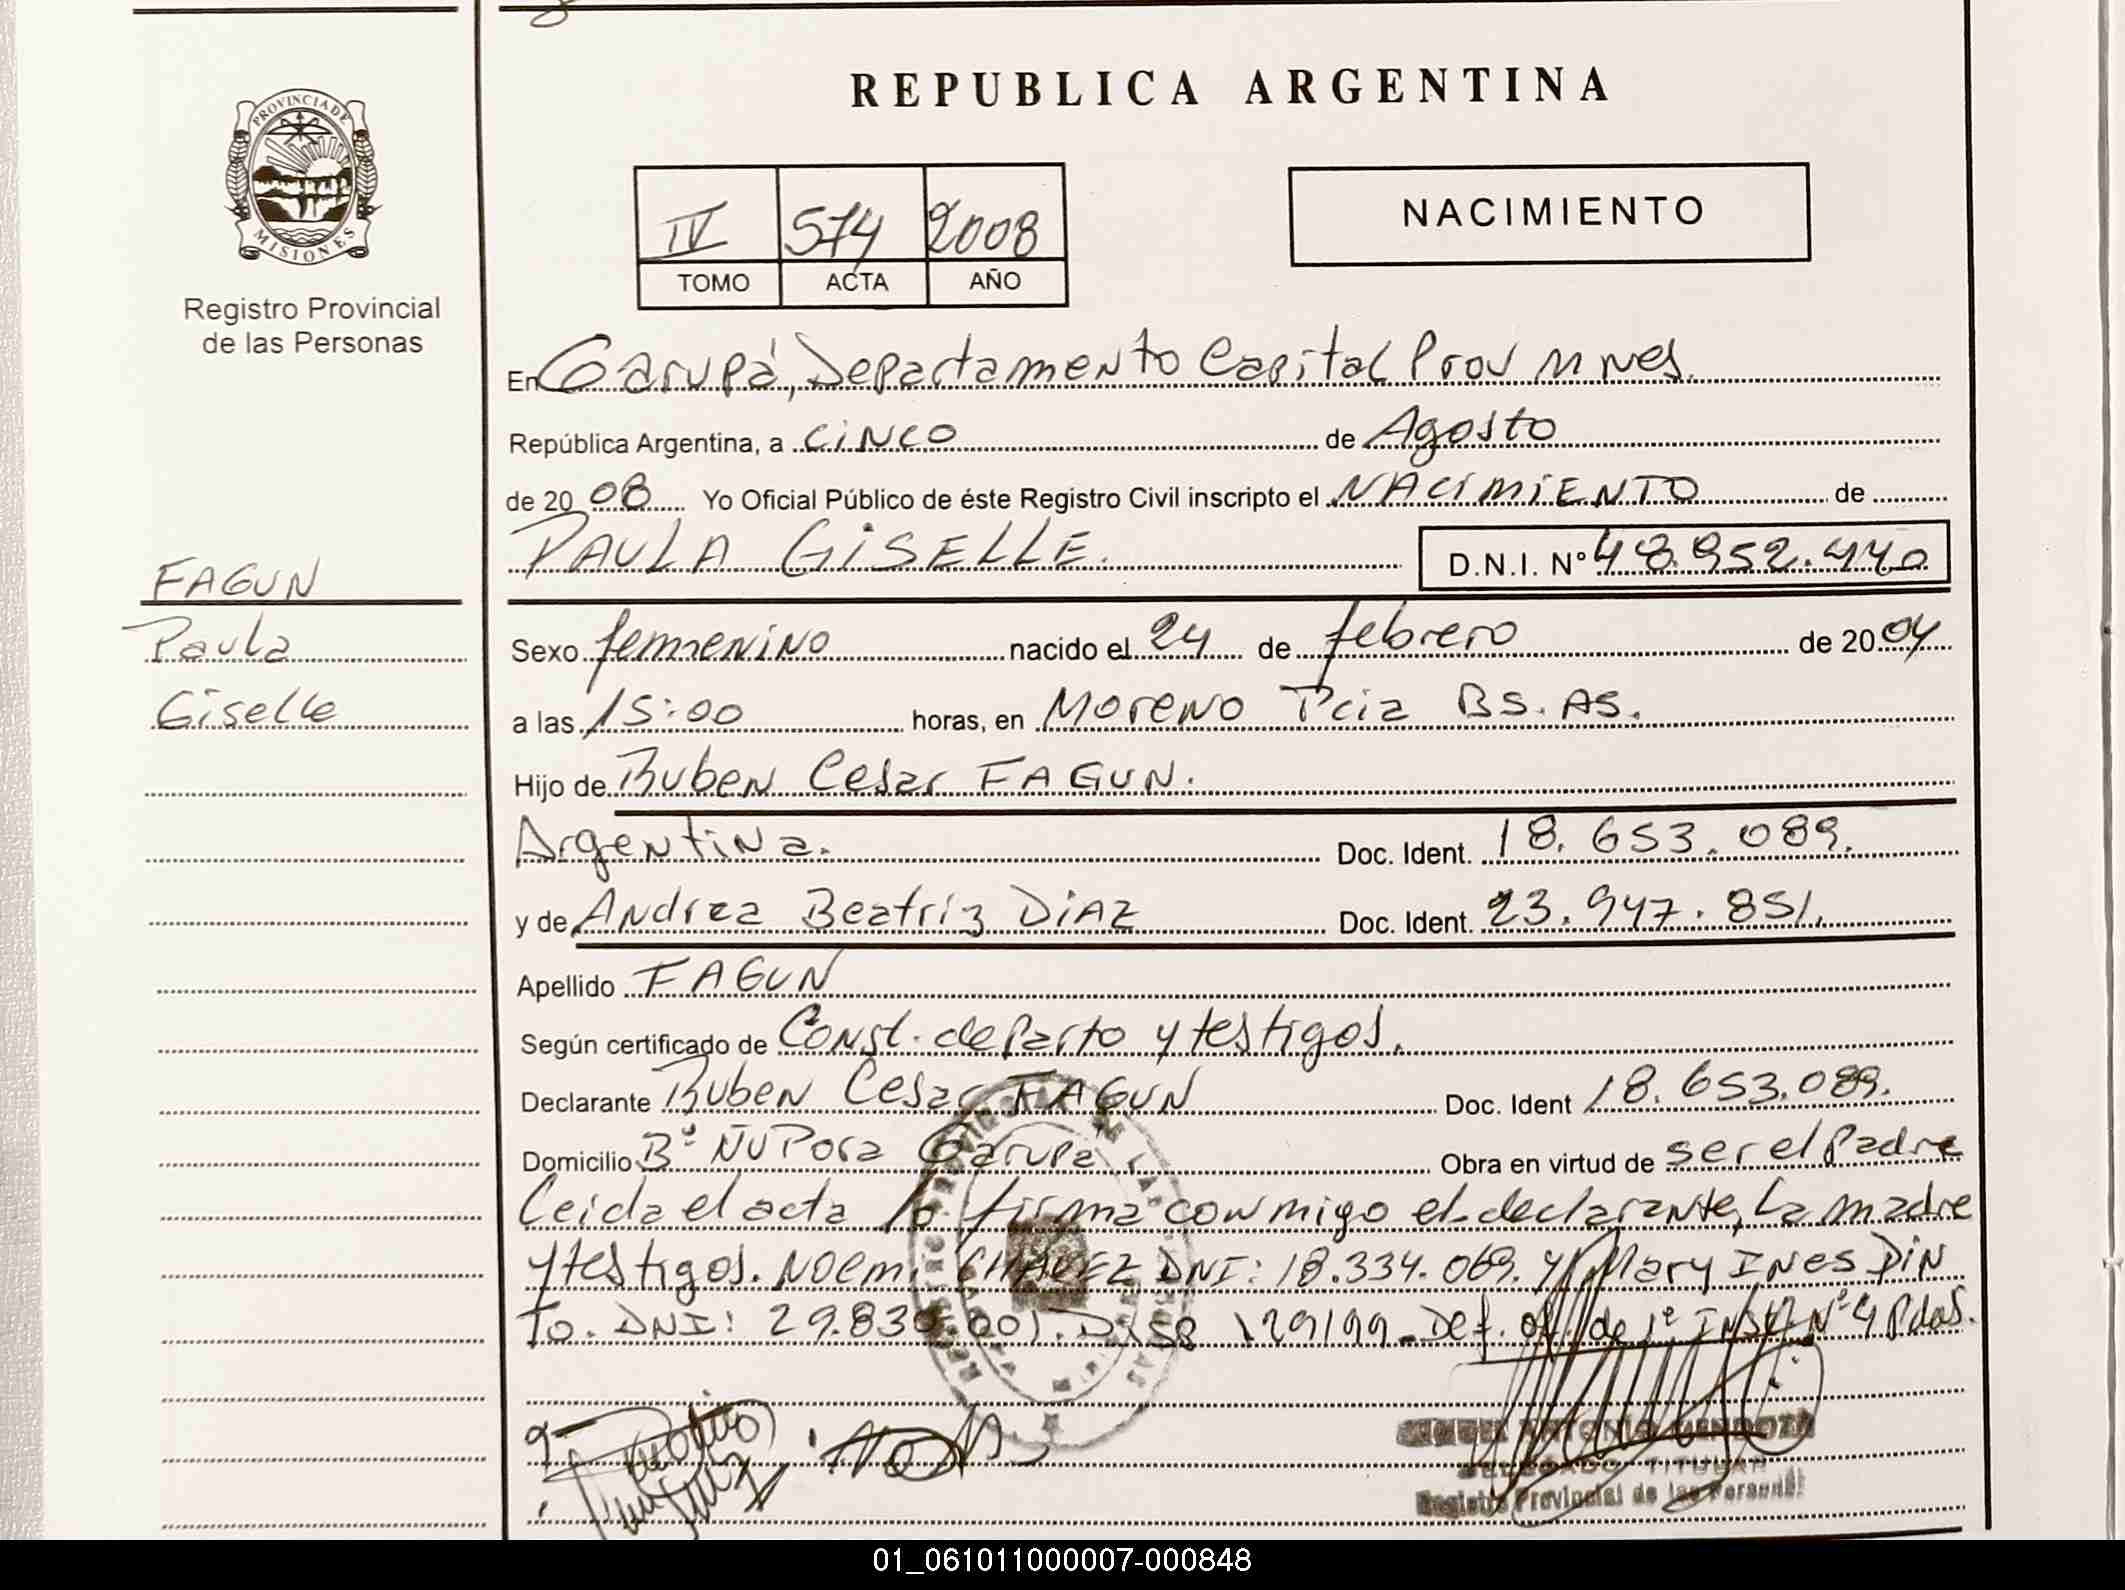 PROVINCIA DE
MISIONES
Registro Provincial
de las Personas
FAGUN
Paula
Giselle
REPUBLICA ARGENTINA
IV 574 2008
TOMO ACTA AÑO
NACIMIENTO
En Garupá, Departamento Capital Prov Mnes.
República Argentina, a cinco de Agosto
de 20 08 Yo Oficial Público de éste Registro Civil inscripto el NACIMIENTO de
PAULA GISELLE. D.N.I. N° 48.952.440
Sexo femenino nacido el 24 de febrero de 20 04
a las 15:00 horas, en Moreno Pcia BS. AS.
Hijo de Ruben Cesar FAGUN.
Argentina. Doc. Ident. 18.653.089.
y de Andrea Beatriz DIAZ Doc. Ident. 23.947.851.
Apellido FAGUN
Según certificado de Const. de Parto y testigos.
Declarante Ruben Cesar FAGUN Doc. Ident 18.653.089.
Domicilio B° ÑU Pora Garupá. Obra en virtud de ser el Padre
Leida el acta la firma conmigo el declarante, La madre
y testigos. Noemi CHAVEZ DNI: 18.334.069. y Mary Ines Pin
to. DNI: 29.830.001. Disp 129/99 - Def. of. de 1° Inst N° 4 Pdas.
ANTONIO MENDOZA
DELEGADO TITULAR
Registro Provincial de las Personas
01_061011000007-000848